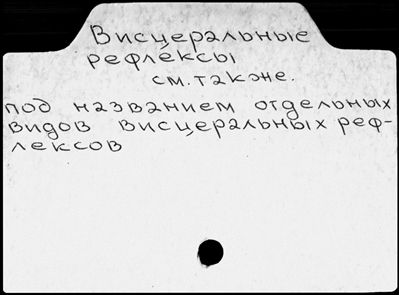 Висцеральные
рефлексы
см. также.
под названием отдельных
видов висцеральных реф-
лексов